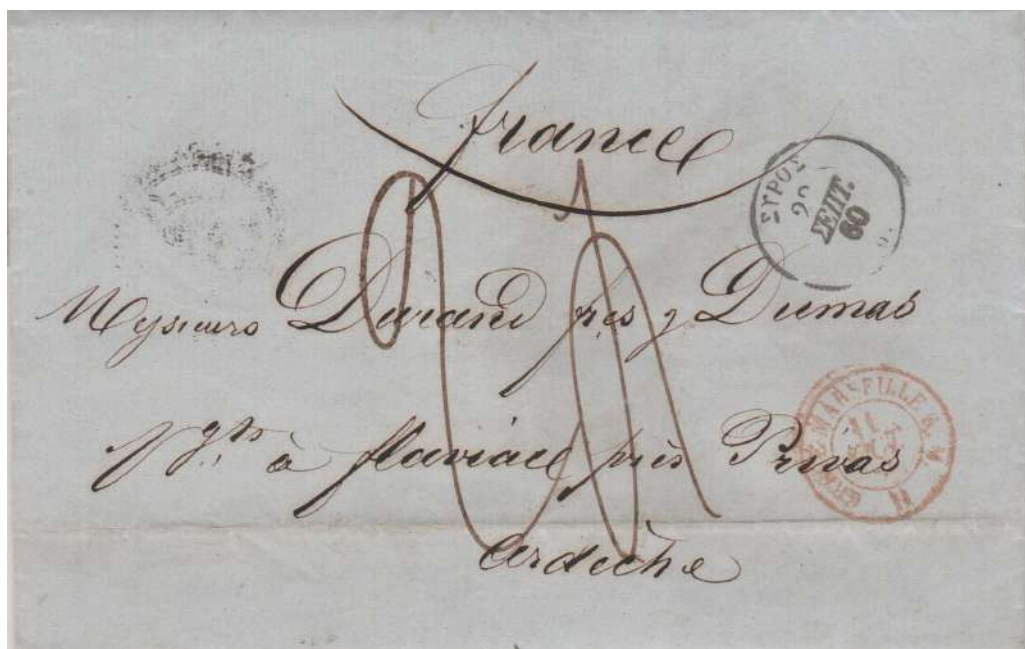 france
ΣΥΡΟΣ
ΣΕΠΤ.
60
Messieurs Durand frès & Dumas
MARSEILLE
Ngts à flaviac près Privas
ardèche